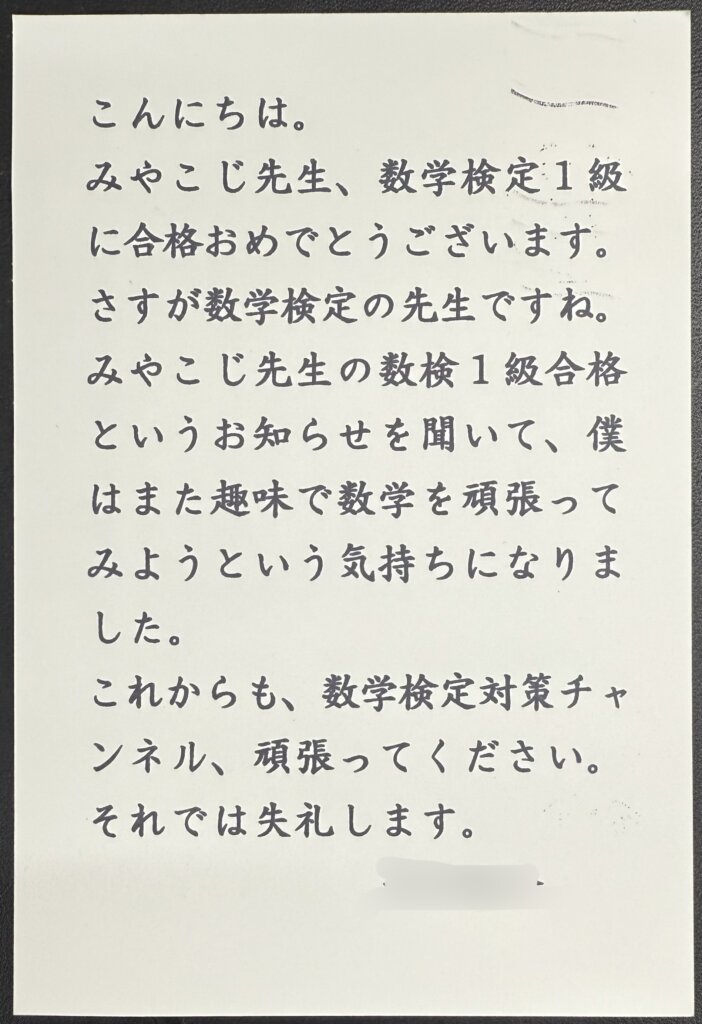 こんにちは。
みやこじ先生、数学検定１級
に合格おめでとうございます。
さすが数学検定の先生ですね。
みやこじ先生の数検１級合格
というお知らせを聞いて、僕
はまた趣味で数学を頑張って
みようという気持ちになりま
した。
これからも、数学検定対策チャ
ンネル、頑張ってください。
それでは失礼します。